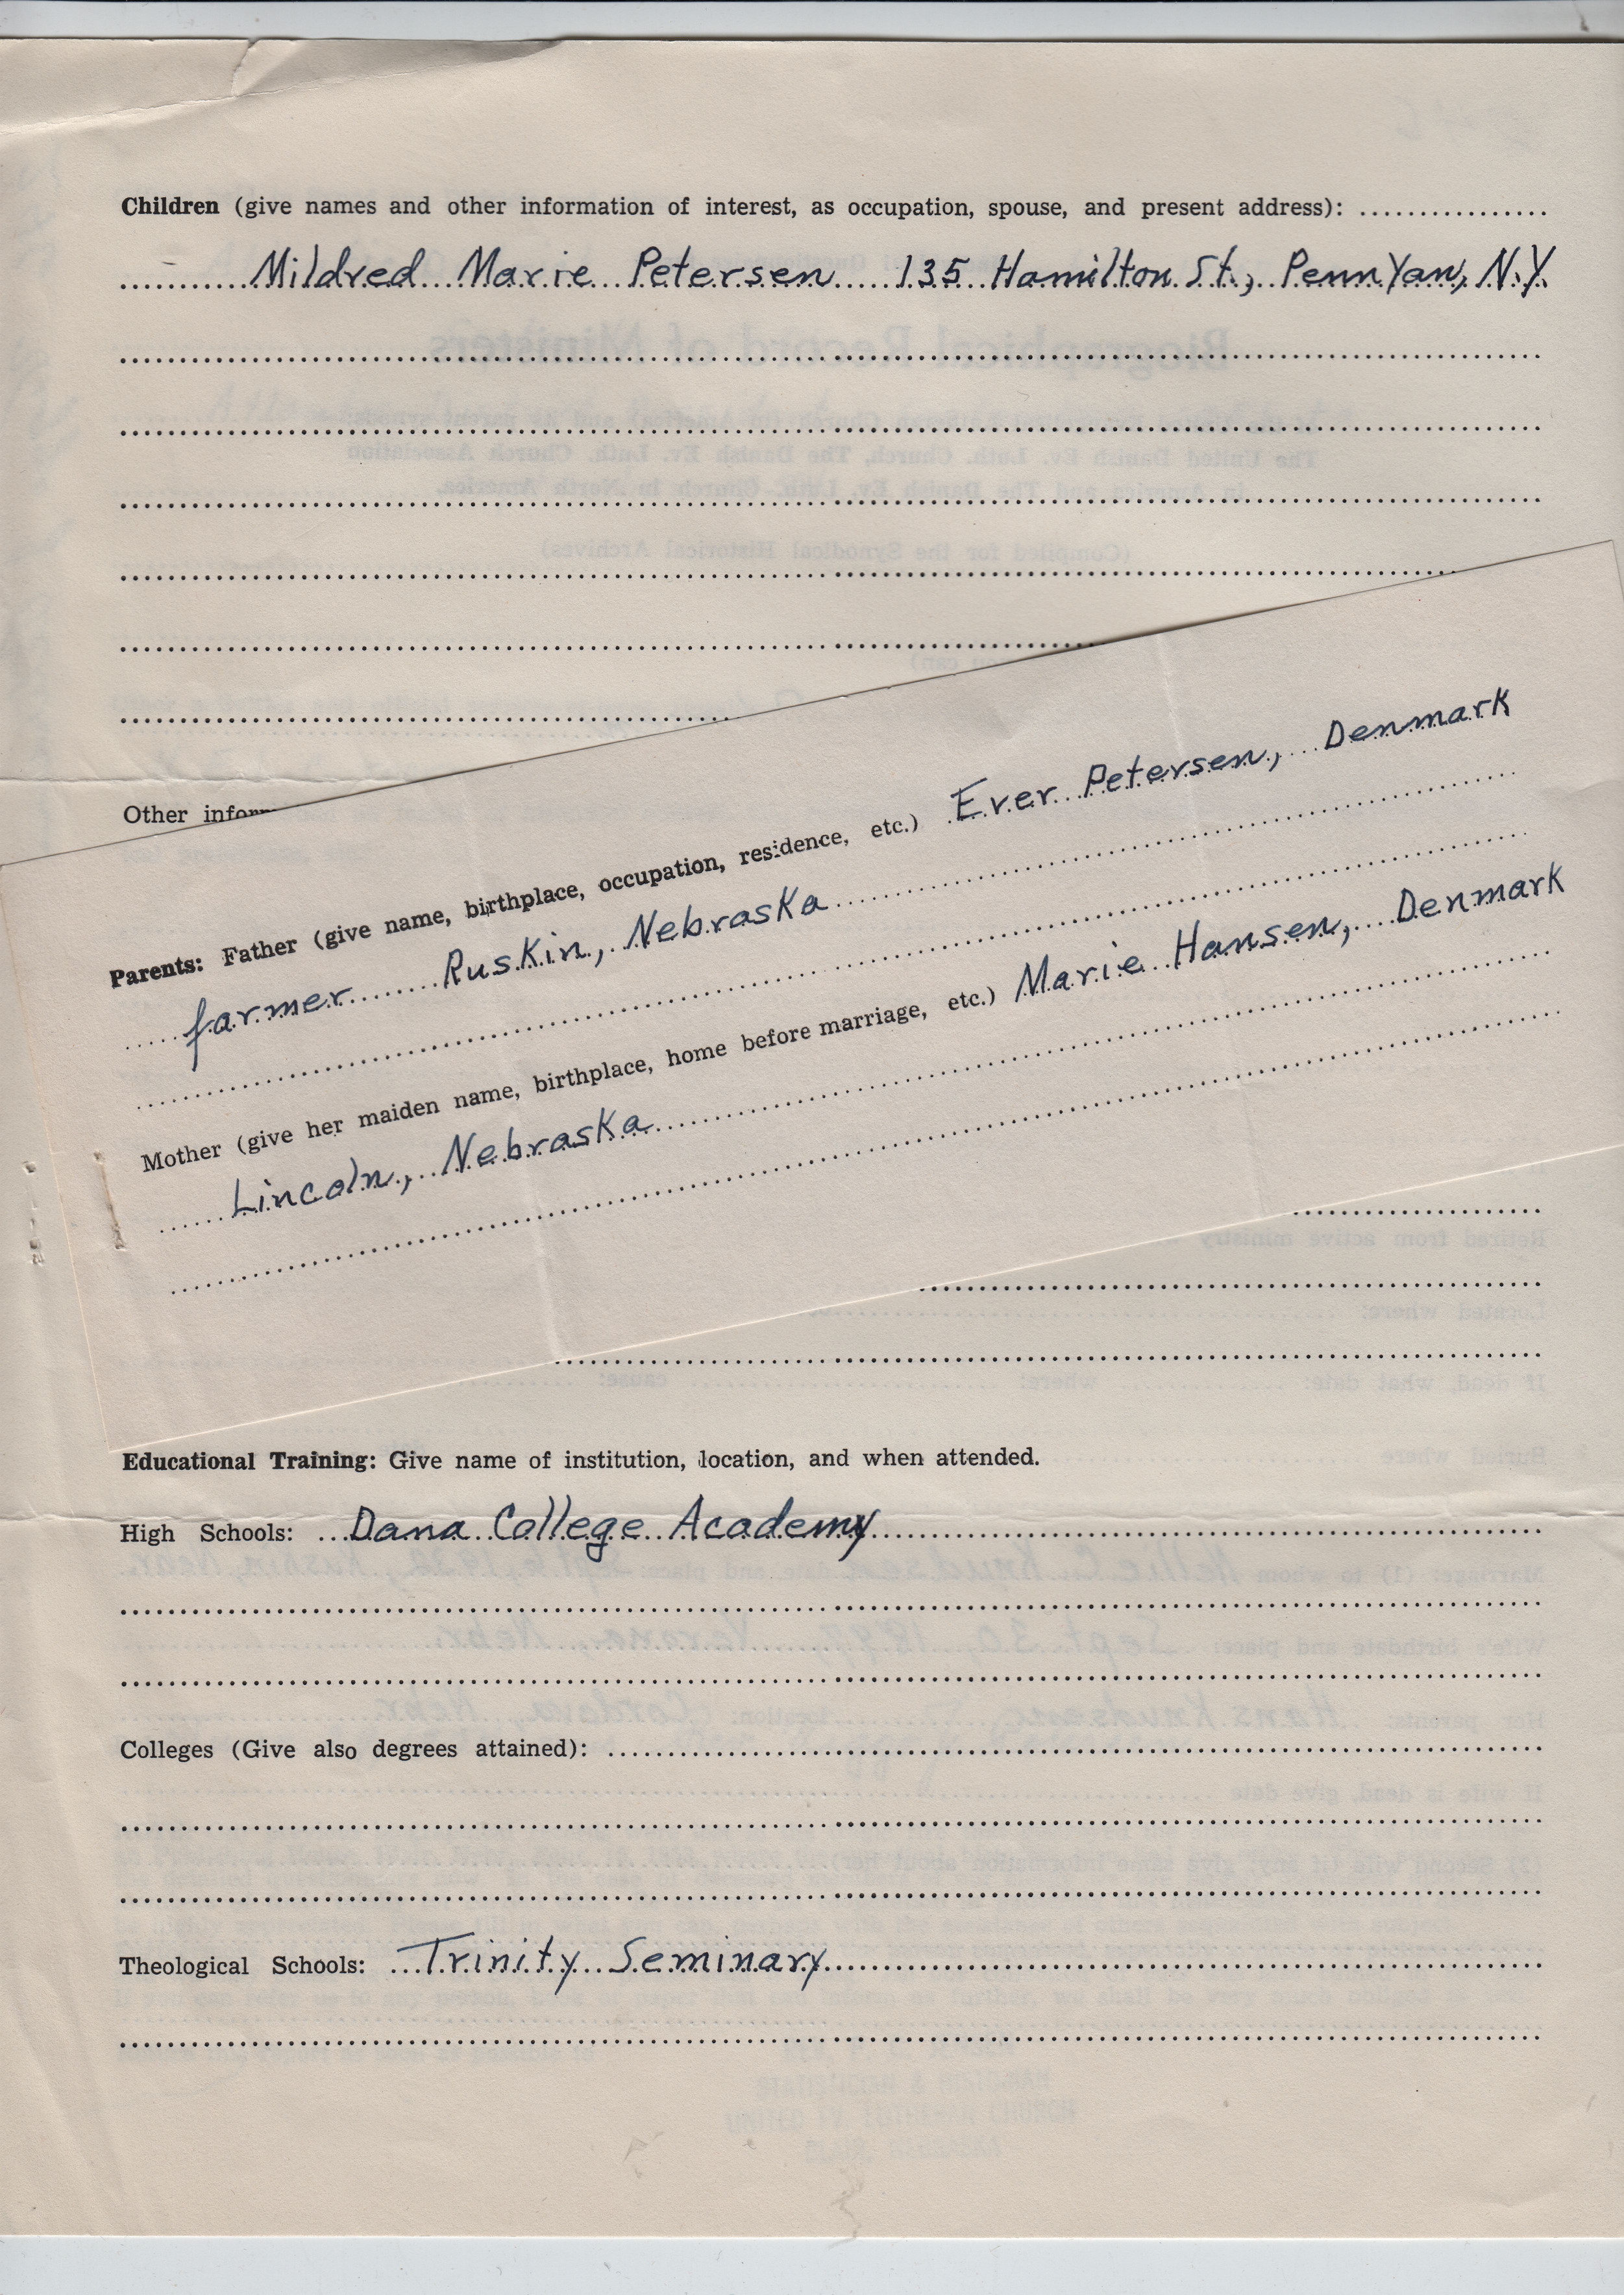 Children (give names and other information of interest, as occupation, spouse, and present address):
Mildred Marie Petersen 135 Hamilton St., Penn Yan, N.Y.
Other inform
Parents: Father (give name, birthplace, occupation, residence, etc.) Ever Petersen, Denmark
farmer Ruskin, Nebraska
Mother (give her maiden name, birthplace, home before marriage, etc.) Marie Hansen, Denmark
Lincoln, Nebraska
Educational Training: Give name of institution, location, and when attended.
High Schools: Dana College Academy
Colleges (Give also degrees attained):
Theological Schools: Trinity Seminary